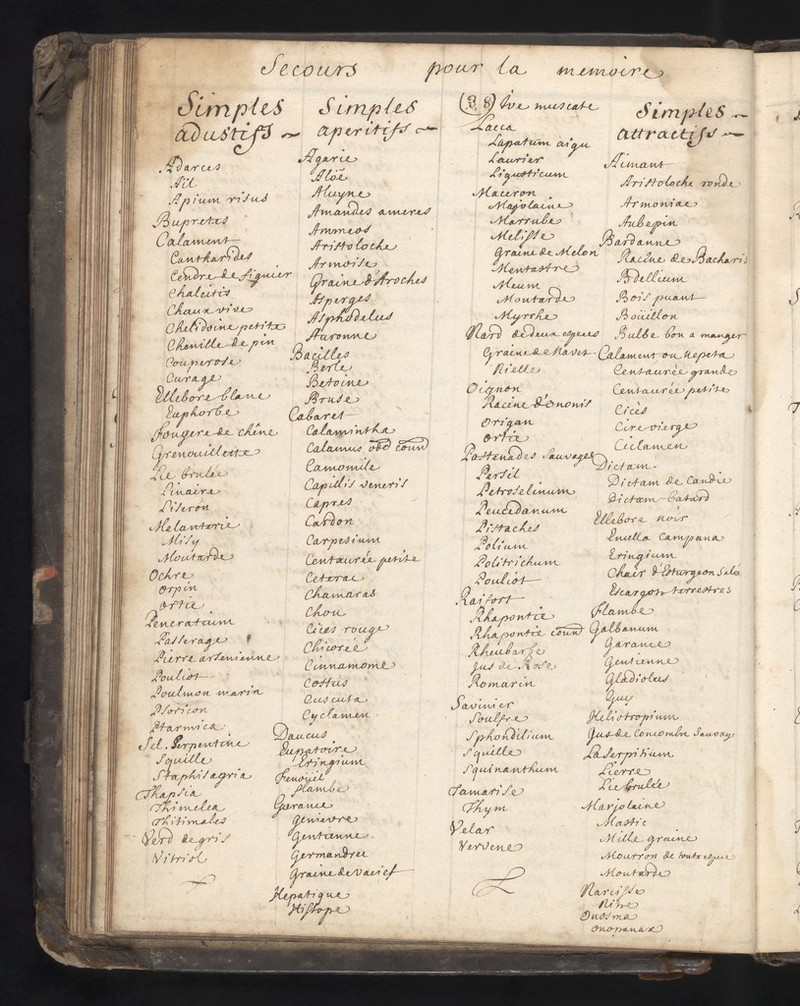 Secours pour la memoire
Simples
adustifs
Adarces
Ail
Apium risus
Buprestes
Calament
Cantharides
Cendre de figuier
Chalcitis
Chaux vive
Chelidoine petite
Chenille de pin
Couperose
Curage
Ellebore blanc
Euphorbe
Fougere de chêne
Grenouillette
Lie brulée
Linaire
Liseron
Melanterie
Misy
Moutarde
Ochre
Orpin
Ortie
Pencratium
Passerage
Pierre arsenienne
Pouliot
Poulmon marin
Psoricon
Ptarmica
Sel. Serpentine
Squille
Staphisagria
Thapsia
Thimelea
Thitimales
Verd de gris
Vitriol
Simples
aperitifs
Agaric
Aloë
Aluyne
Amandes ameres
Ammeos
Aristoloche
Armoise
Graine d'Aroches
Asperges
Asphodelus
Auronne
Bacilles
Berle
Betoine
Bruse
Cabaret
Calamintha
Calamus
Camomile
Capillis veneris
Capres
Cardon
Carpesium
Centaurée petite
Ceterac
Chamaras
Chou
Cices rouge
Chicorée
Cinnamome
Costus
Cuscuta
Cyclamen
Daucus
Eupatoire
Eringium
Fenouil
Flambe
Garance
Genievre
Gentianne
Germandree
Graine de
Hepatique
Hissope
(38) Ive muscate
Lacca
Lapatum aigu
Laurier
Ligusticum
Maceron
Majolaine
Marrube
Melisse
Graine de Melon
Mentastre
Meum
Moutarde
Myrrhe
Nard de deux especes
Graine de Navet
Nielle
Oignon
Racine d'Ononis
Origan
Ortie
Pastenades sauvages
Persil
Petroselinum
Peucedanum
Pistaches
Polium
Politrichum
Pouliot
Raifort
Rhapontic
Rhapontic
Rheubarbe
Jus de Rose
Romarin
Savinier
Soulfre
Sphondilium
Squille
Squinanthum
Tamarise
Thym
Velar
Vervene
Simples
attractifs
Aimant
Aristoloche ronde
Armoniac
Aubepin
Bardanne
Racine de Bacharis
Bdellium
Bois puant
Boüillon
Bulbe bon a manger
Calament ou Nepeta
Centaurée grande
Centaurée petite
Cices
Cire vierge
Ciclamen
Dictam
Dictam de Candie
Dictam batard
Ellebore noir
Enulla Campana
Eringium
Chair d'Esturgeon salé
Escargots terrestres
Flambe
Galbanum
Garance
Gentienne
Gladiolus
Guy
Heliotropium
Jus de Concombre Sauvage
Laserpitium
Lierre
Lie brulée
Marjolaine
Mastic
Mille graine
Mourron de toute espece
Moutarde
Narcisse
Nitre
Onosma
Onopanax